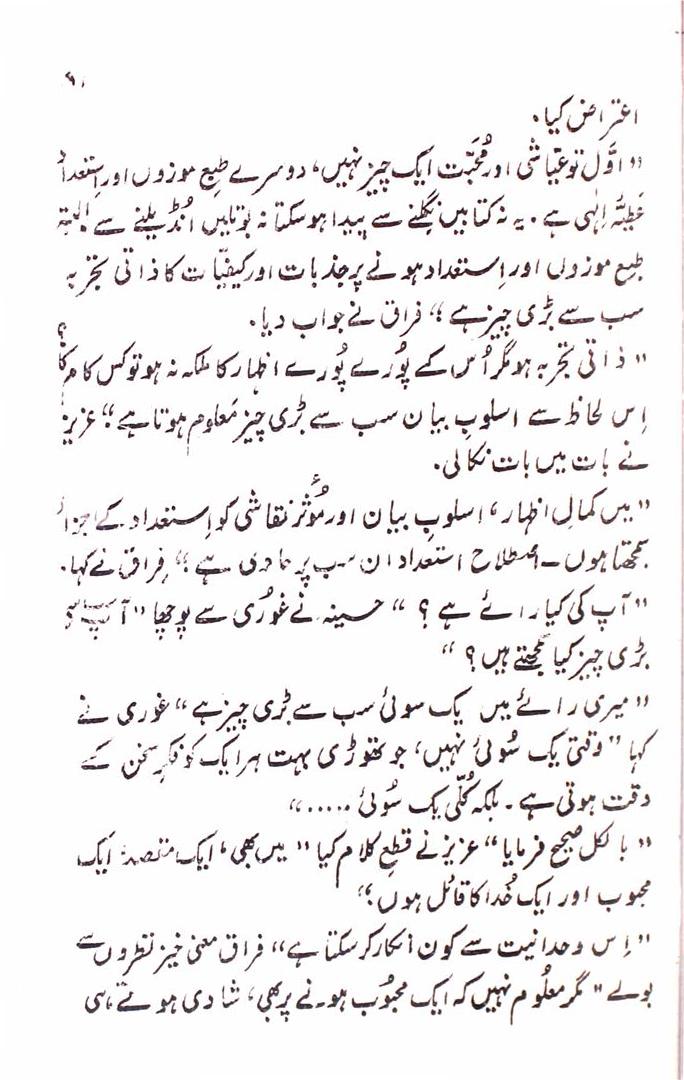 اعتراض کیا۔
"اوّل تو عیّاشی اور مُحبّت ایک چیز نہیں، دوسرے طبع موزوں اور اِستعداد
عَطیّۂ اِلٰہی ہے۔ یہ نہ کتابیں نگلنے سے پیدا ہو سکتا نہ بوتلیں اُنڈیلنے سے البتہ
طبع موزوں اور اِستعداد ہونے پر جذبات اور کیفیّات کا ذاتی تجربہ
سب سے بڑی چیز ہے" فراق نے جواب دیا۔
"ذاتی تجربہ ہو مگر اُس کے پُورے پُورے اظہار کا ملکہ نہ ہو تو کس کام کا؟
اِس لحاظ سے اسلوبِ بیان سب سے بڑی چیز مَعلوم ہوتا ہے" عزیز
نے بات میں بات نکالی۔
"میں کمالِ اظہار، اسلوبِ بیان اور مُؤثر نقاشی کو اِستعداد کے اجزا
سمجھتا ہوں ـ اصطلاح استعداد ان سب پر حاوی ہے" فراق نے کہا۔
"آپ کی کیا رائے ہے؟" حسینہ نے غوری سے پوچھا "آپ سب سے
بڑی چیز کیا سمجھتے ہیں؟"
"میری رائے میں یک سوئی سب سے بڑی چیز ہے" غوری نے
کہا "وقتی یک سُوئی نہیں، جو تھوڑی بہت ہر ایک کو فکرِ سخن کے
وقت ہوتی ہے۔ بلکہ کُلّی یک سُوئی ....."
"بالکل صحیح فرمایا" عزیز نے قطع کلام کیا "میں بھی، ایک مقصد، ایک
محبوب اور ایک خُدا کا قائل ہوں"
"اِس وحدانیت سے کون انکار کر سکتا ہے" فراق معنی خیز نظروں سے
بولے "مگر معلُوم نہیں کہ ایک محبُوب ہونے پر بھی، شادی ہوتے ہی